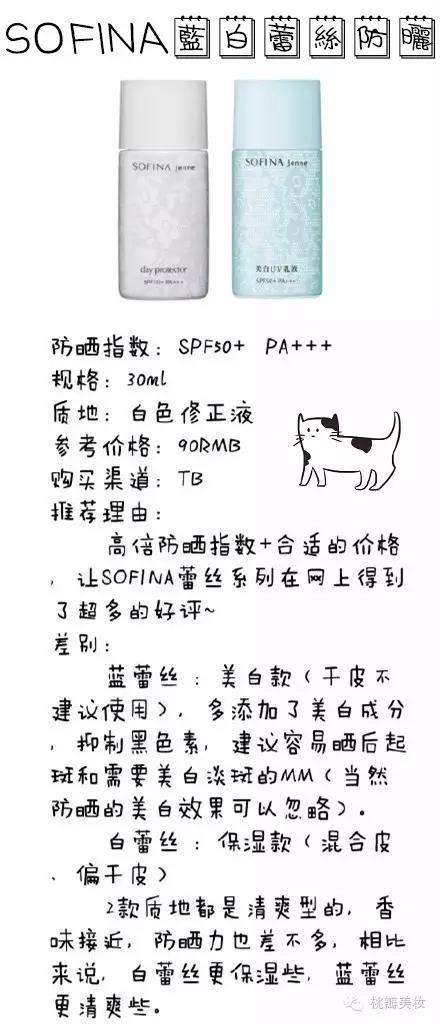 SOFINA藍白蕾絲防曬
SOFINA Jenne
SOFINA Jenne
day protector
SPF50+ PA+++
美白UV乳液
SPF50+ PA+++
防晒指数：SPF50+ PA+++
规格：30ml
质地：白色修正液
参考价格：90RMB
购买渠道：TB
推荐理由：
高倍防晒指数+合适的价格
，让SOFINA蕾丝系列在网上得到
了超多的好评~
差别：
蓝蕾丝：美白款（干皮不
建议使用），多添加了美白成分
，抑制黑色素，建议容易晒后起
斑和需要美白淡斑的MM（当然
防晒的美白效果可以忽略）。
白蕾丝：保湿款（混合皮
、偏干皮）
2款质地都是清爽型的，香
味接近，防晒力也差不多，相比
来说，白蕾丝更保湿些，蓝蕾丝
更清爽些。
桃瓣美妆